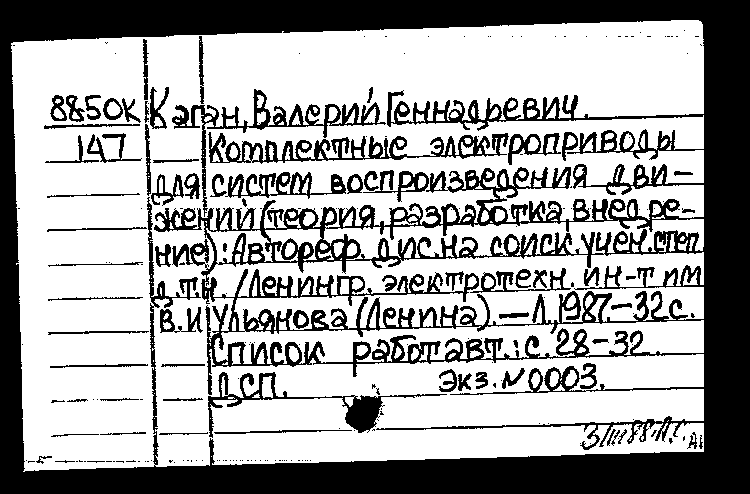 8850К Каган, Валерий Геннадьевич.
147 Комплектные электроприводы
для систем воспроизведения дви-
жений (теория, разработка, внедре-
ние): Автореф. дис. на соиск. учен. степ.
д.т.н. /Ленингр. электротехн. ин-т им
В.И Ульянова (Ленина). — Л., 1987. — 32 с.
Список работ авт.: с. 28-32.
ДСП. Экз. N 0003.